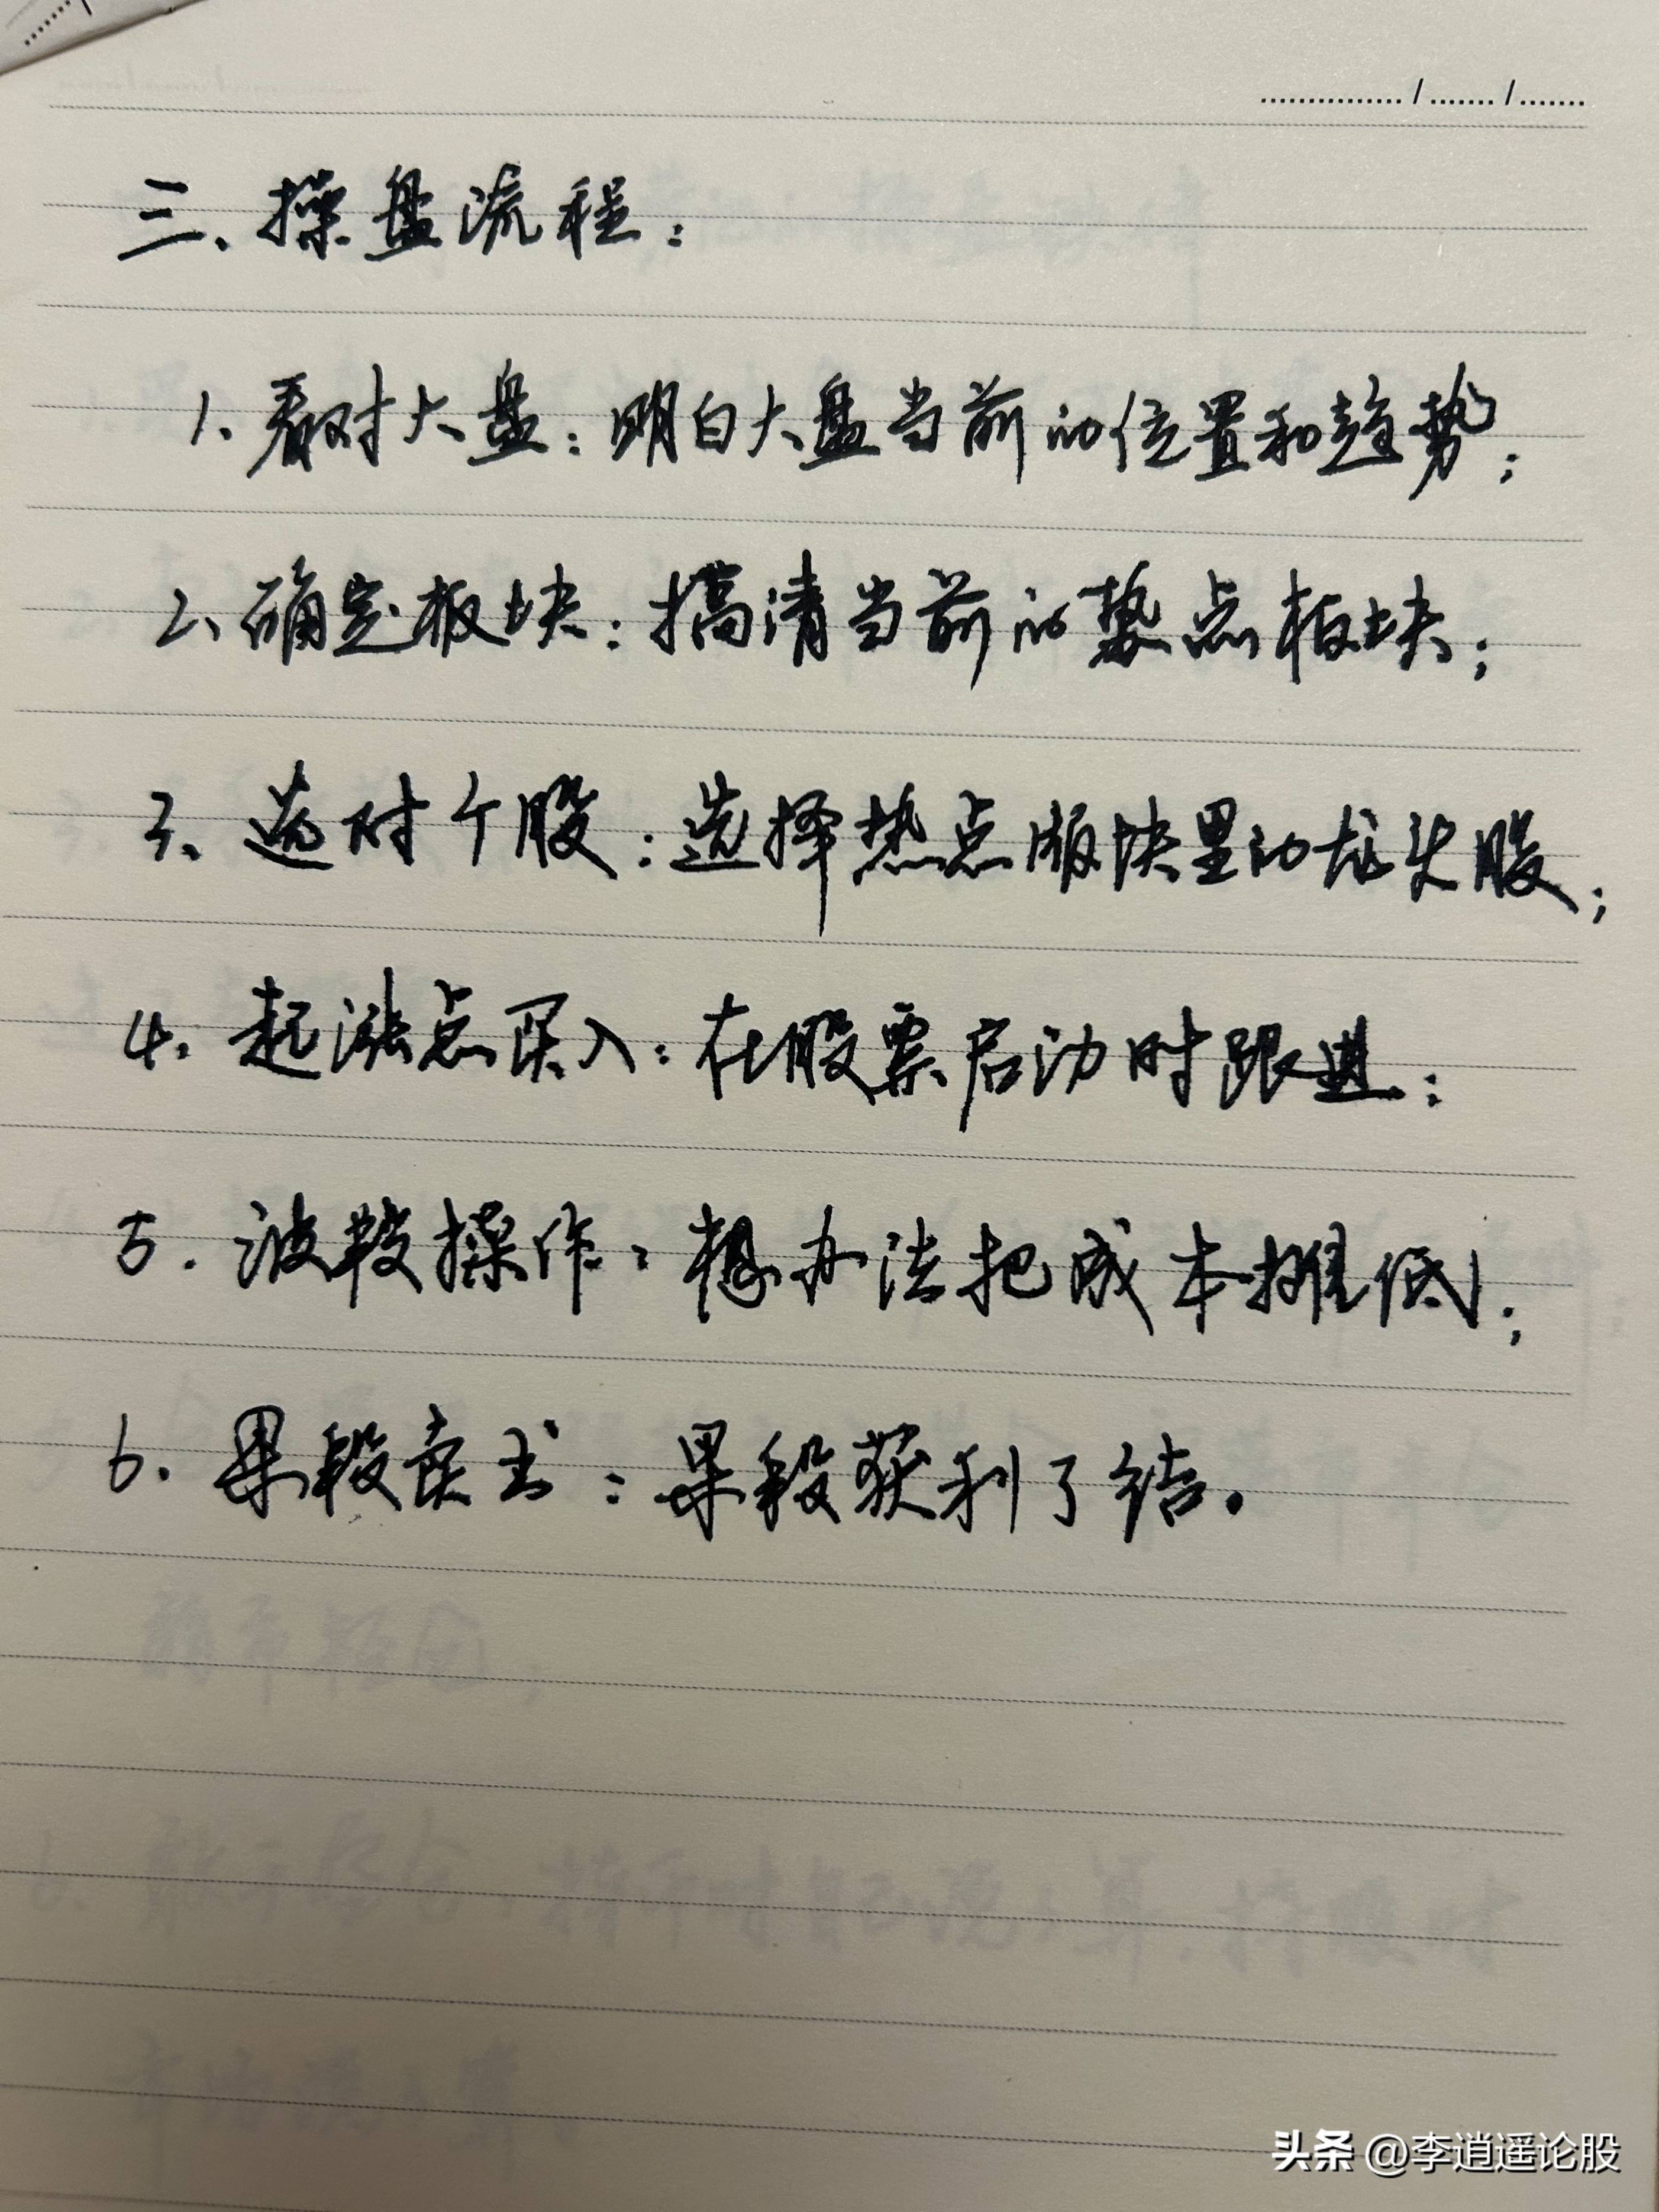 三、操盘流程：
1. 看对大盘：明白大盘当前的位置和趋势；
2、确定板块：搞清当前的热点板块；
3、选对个股：选择热点版块里的龙头股；
4. 起涨点买入：在股票启动时跟进；
5. 波段操作：想办法把成本摊低；
6. 果段卖出：果段获利了结。
头条 @李逍遥论股